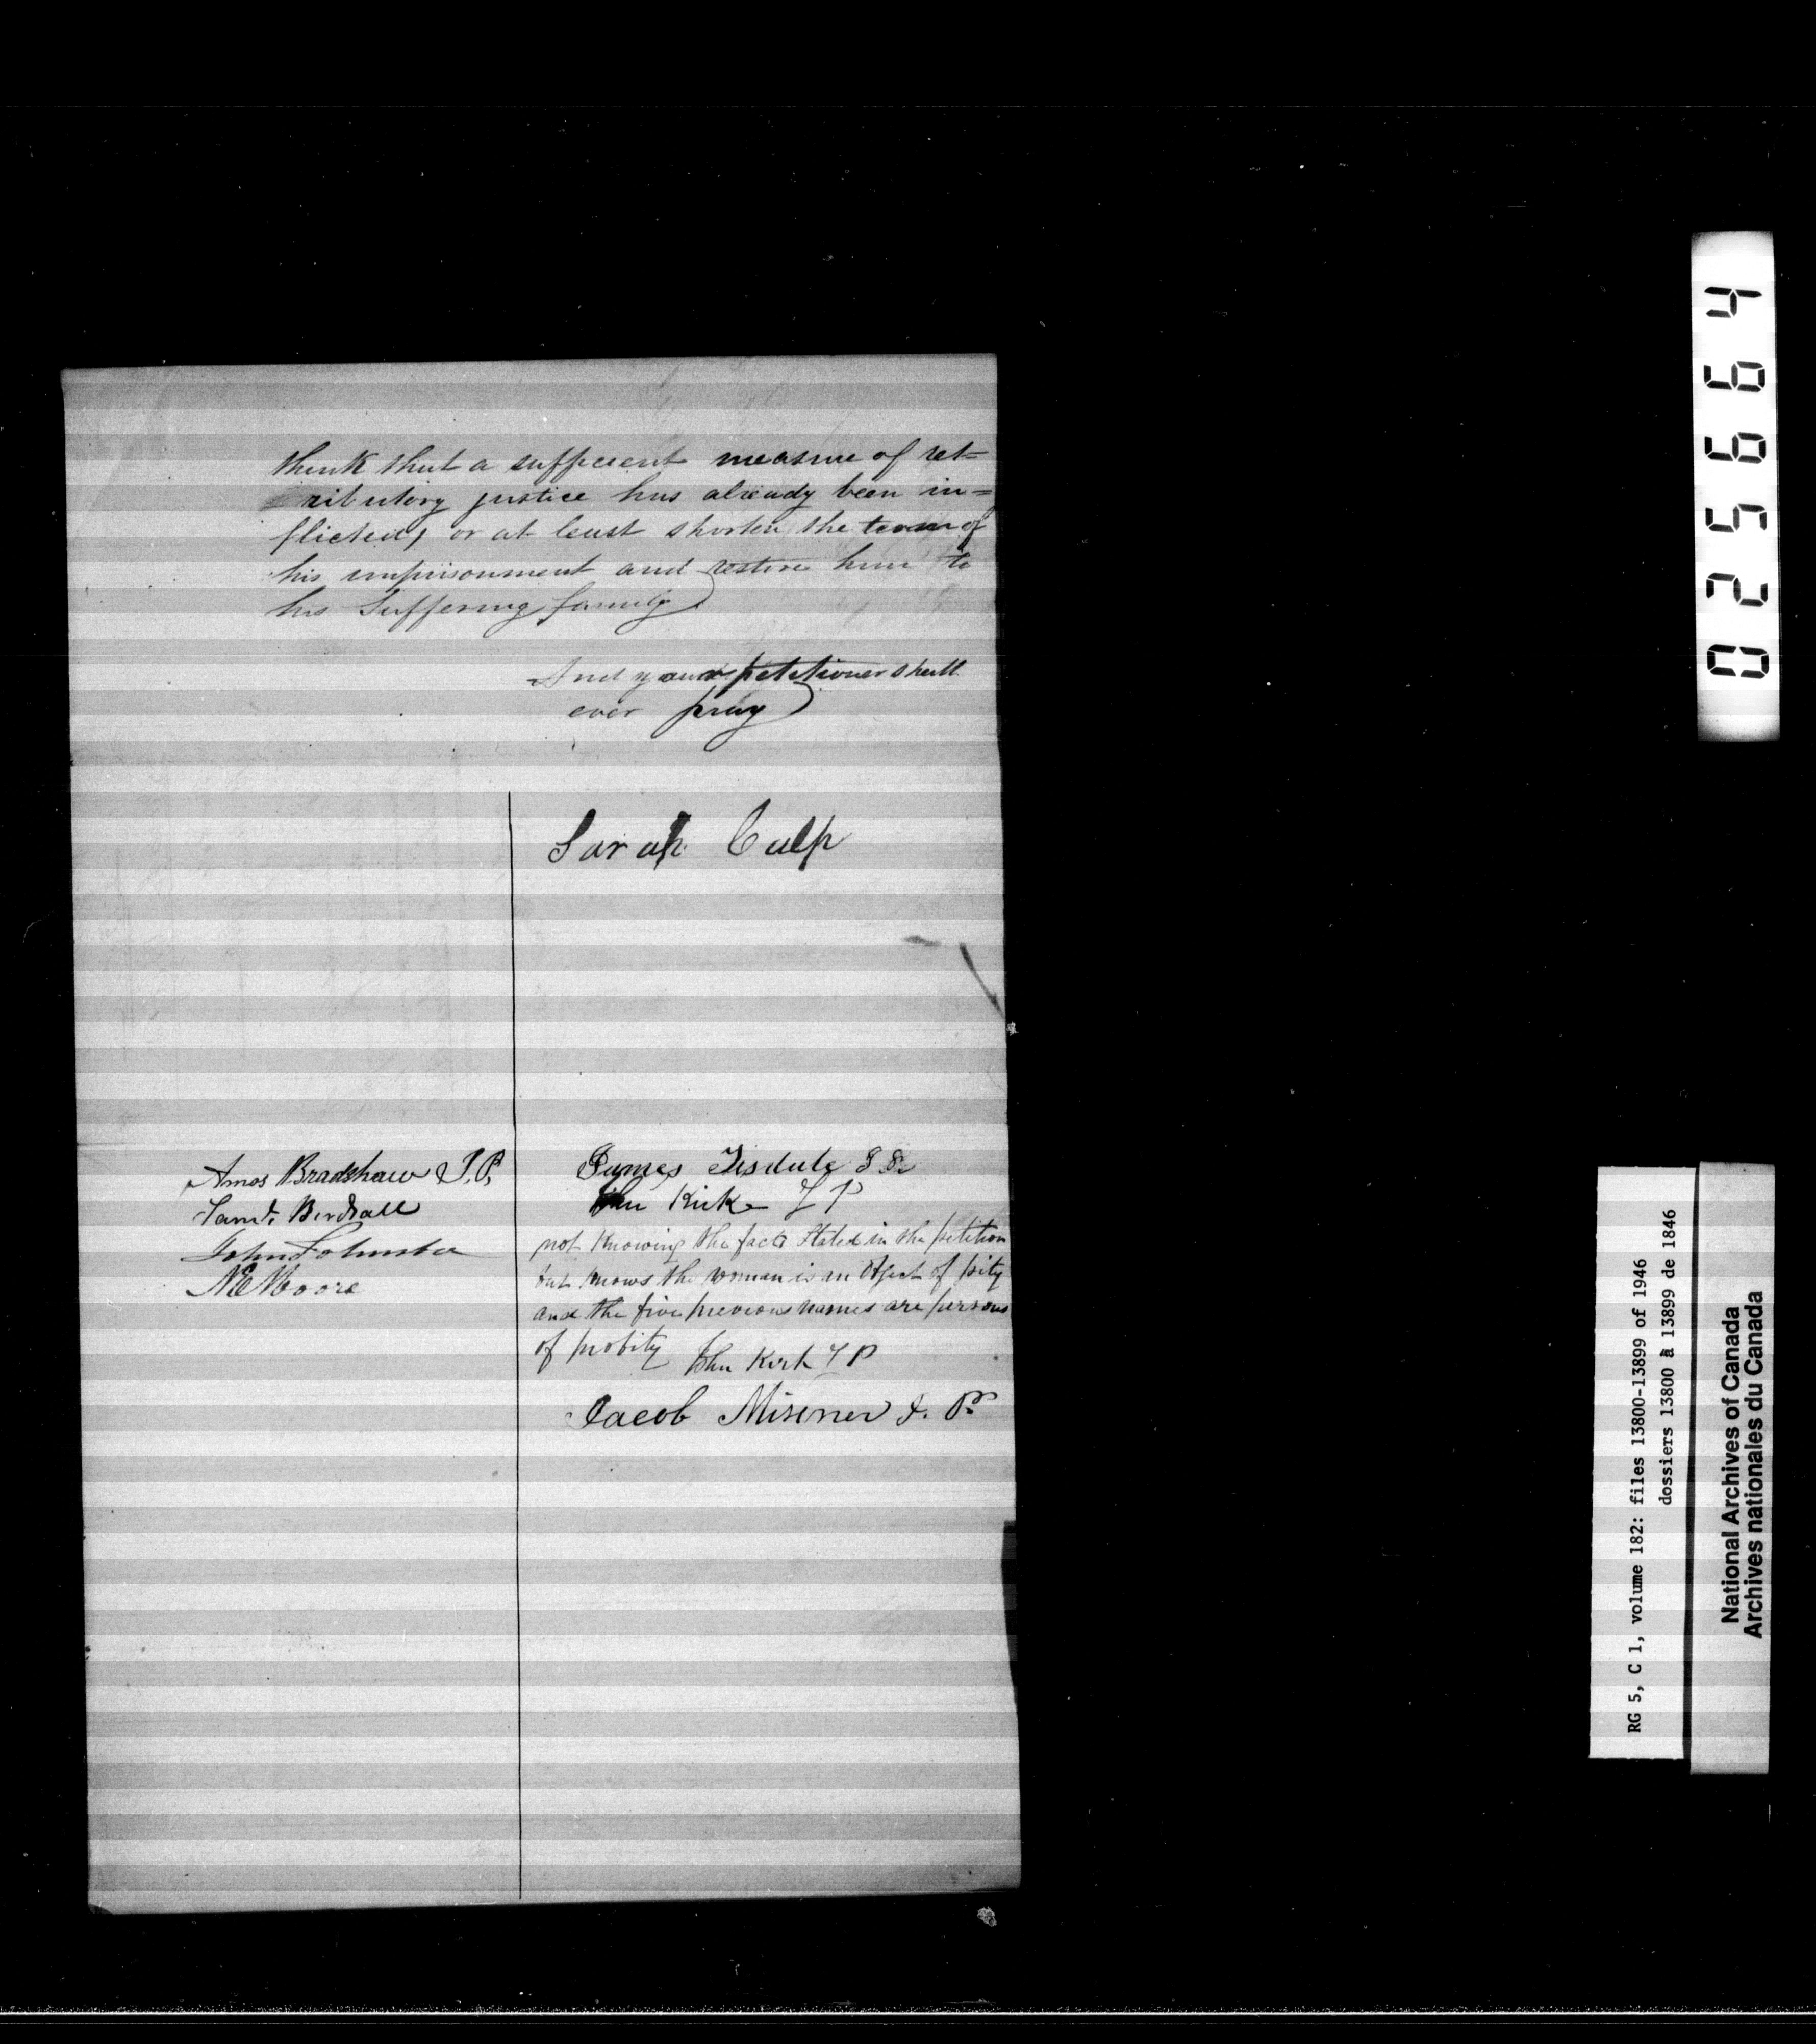 think that a sufficient measure of ret=
ributory justice has already been in=
flicted, or at least shorten the term of
his imprisonment and restore him to
his Suffering family
And your petitioner shall
ever pray
Sarah Culp
Amos Bradshaw J.P.
Saml. Birdsall
John Johnston
Moore
James Tisdale
John Kirk J P
not knowing the facts Stated in the petition
but knows the woman is an Object of pity
and the five previous names are persons
of probity John Kirk J P
Jacob Misener J. P.
025664
RG 5, C 1, volume 182: files 13800-13899 of 1946
dossiers 13800 à 13899 de 1846
National Archives of Canada
Archives nationales du Canada